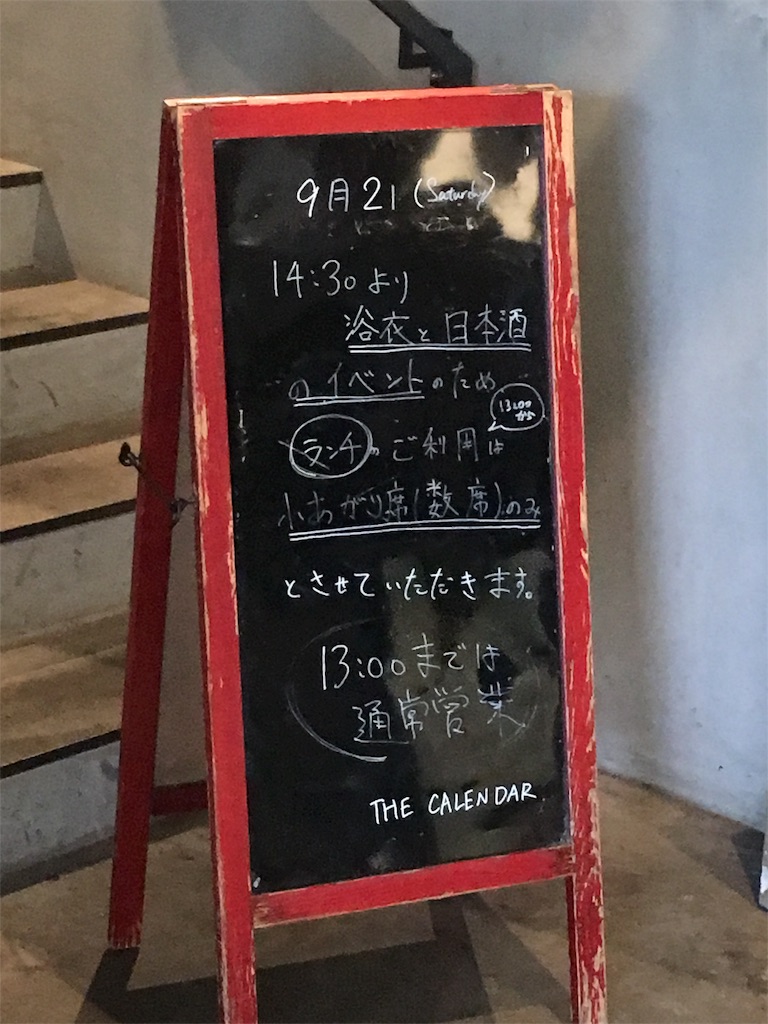 9月21(Saturday)
14:30より
浴衣と日本酒
のイベントのため
13:00から
ランチのご利用は
小あがり席(数席)のみ
とさせていただきます。
13:00までは
通常営業
THE CALENDAR